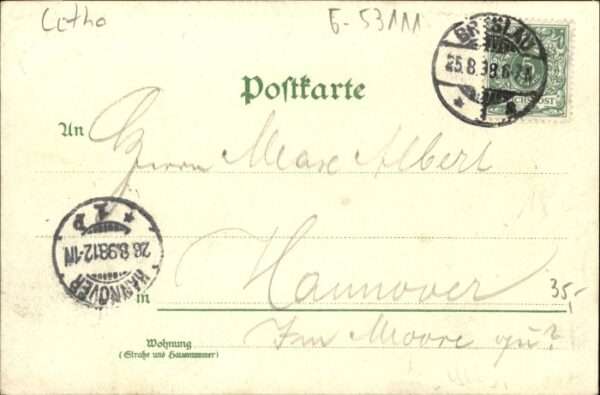 Litho
6-53111
BRESLAU
25.8.98.6-7N
* 1 a
5
REICHSPOST
Postkarte
An
Herrn Max Albert
* 1 P
26.8.98.12-1N
HANNOVER
in
Hannover
35,-
Im Moore
Wohnung
(Straße und Hausnummer)